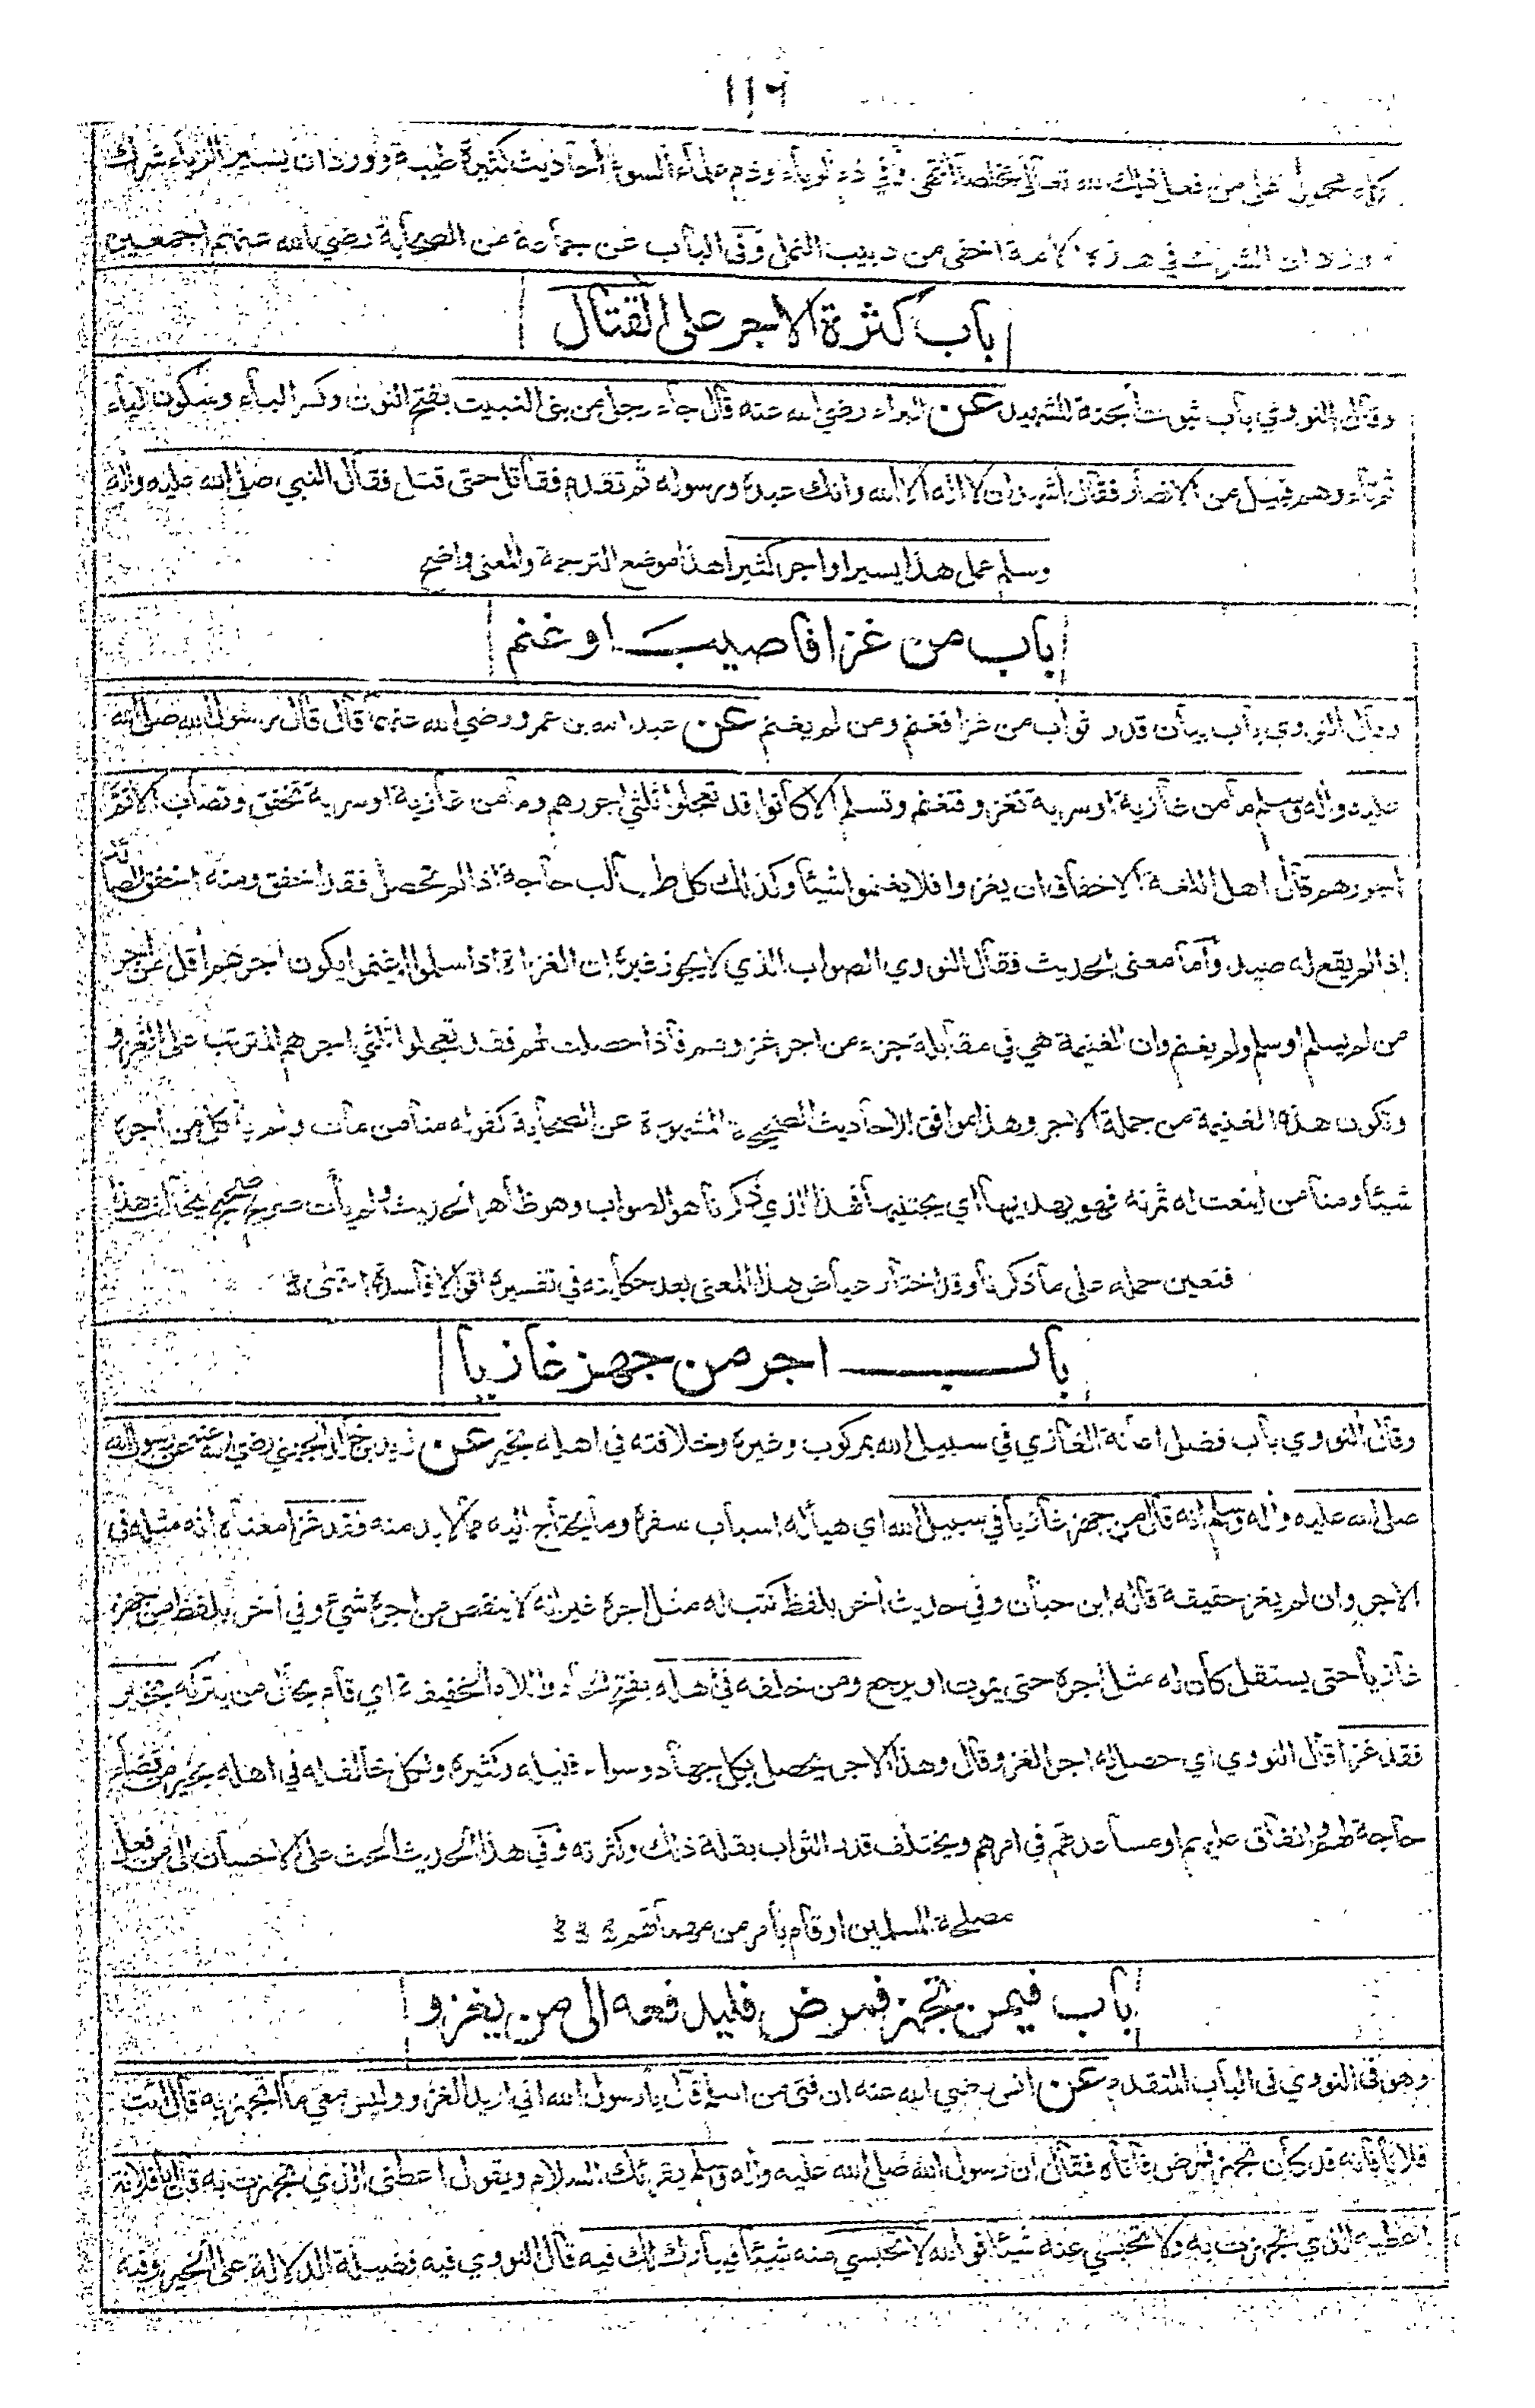 ١١٦
كله محمول على من فعل ذلك لله تعالى مخلصا انتهى وفي ذم الرياء وذم علماء السوء أحاديث كثيرة طيبة وورد ان يسير الرياء شرك
وورد ان الشرك في هذه الامة اخفى من دبيب النمل وفي الباب عن جماعة من الصحابة رضي الله عنهم اجمعين
باب كثرة الاجر على القتال
وقال النووي باب ثبوت الجنة للشهيد عن البراء رضي الله عنه قال جاء رجل من بني النبيت بفتح النون وكسر الباء وسكون الياء
ثم تاء وهم قبيل من الانصار فقال اشهد ان لا اله الا الله وانك عبده ورسوله ثم تقدم فقاتل حتى قتل فقال النبي صلى الله عليه وآله
وسلم عمل هذا يسيرا واجر كثيرا هذا موضع الترجمة والمعنى واضح
باب من غزا فاصيب او غنم
وقال النووي باب بيان قدر ثواب من غزا فغنم ومن لم يغنم عن عبد الله بن عمرو رضي الله عنهما قال قال رسول الله صلى الله
عليه وآله وسلم ما من غازية او سرية تغزو فتغنم وتسلم الا كانوا قد تعجلوا ثلثي اجورهم وما من غازية او سرية تخفق وتصاب الا تم
اجورهم قال اهل اللغة الاخفاق ان يغزوا فلا يغنموا شيئا وكذلك كل طالب حاجة اذا لم تحصل فقد اخفق ومنه اخفق الصائد
إذا لم يقع له صيد وأما معنى الحديث فقال النووي الصواب الذي لا يجوز غيره ان الغزاة اذا سلموا او غنموا يكون اجرهم أقل من أجر
من لم يسلم او سلم ولم يغنم وان الغنيمة هي في مقابلة جزء من اجر غزوهم فاذا حصلت لهم فقد تعجلوا ثلثي اجرهم المترتب على الغزو
وتكون هذه الغنيمة من جملة الاجر وهذا موافق للاحاديث الصحيحة المشهورة عن الصحابة كقوله منا من مات ولم يأكل من أجره
شيئا ومنا من اينعت له ثمرته فهو يهدبها أي يجتنيها فهذا الذي ذكرنا هو الصواب وهو ظاهر الحديث ولم يأت صريح صحيح يخالف هذا
فتعين حمله على ما ذكرنا وقد اختار عياض هذا المعنى بعد حكايته في تفسيره اقوالا فاسدة انتهى
باب اجر من جهز غازيا
وقال النووي باب فضل اعانة الغازي في سبيل الله بمركوب وغيره وخلافته في اهله بخير عن زيد بن خالد الجهني رضي الله عنه عن رسول الله
صلى الله عليه وآله وسلم انه قال من جهز غازيا في سبيل الله اي هيأ له اسباب سفره وما يحتاج اليه مما لا بد منه فقد غزا معناه انه مثله في
الاجر وان لم يغز حقيقة قاله ابن حبان وفي حديث أخر بلفظ كتب له مثل اجره غير انه لا ينقص من اجره شيء وفي أخر بلفظ من جهز
غازيا حتى يستقل كان له مثل أجره حتى يموت او يرجع ومن خلفه في أهله بفتح الخاء واللام الخفيفة اي قام بحال من يتركه بخير
فقد غزا قال النووي اي حصل له اجر الغزو وقال وهذا الاجر يحصل بكل جهاد وسواء قليله وكثيره ولكل خالف له في اهله بخير من قضاء
حاجة لهم وانفاق عليهم او مساعدتهم في امرهم ويختلف قدر الثواب بقلة ذلك وكثرته وفي هذا الحديث الحث على الاحسان الى من فعل
مصلحة المسلمين او قام بأمر من مهماتهم
باب فيمن تجهز فمرض فليدفعه الى من يغزو
وهو في النووي في الباب المتقدم عن انس رضي الله عنه ان فتى من اسلم قال يا رسول الله اني اريد الغزو وليس معي ما اتجهز به قال ائت
فلانا فانه قد كان تجهز فمرض فاتاه فقال ان رسول الله صلى الله عليه وآله وسلم يقرئك السلام ويقول اعطني الذي تجهزت به قال يا فلانة
اعطيه الذي تجهزت به ولا تحبسي عنه شيئا فوالله لا تحبسي منه شيئا فيبارك لك فيه قال النووي فيه فضيلة الدلالة على الخير وفيه